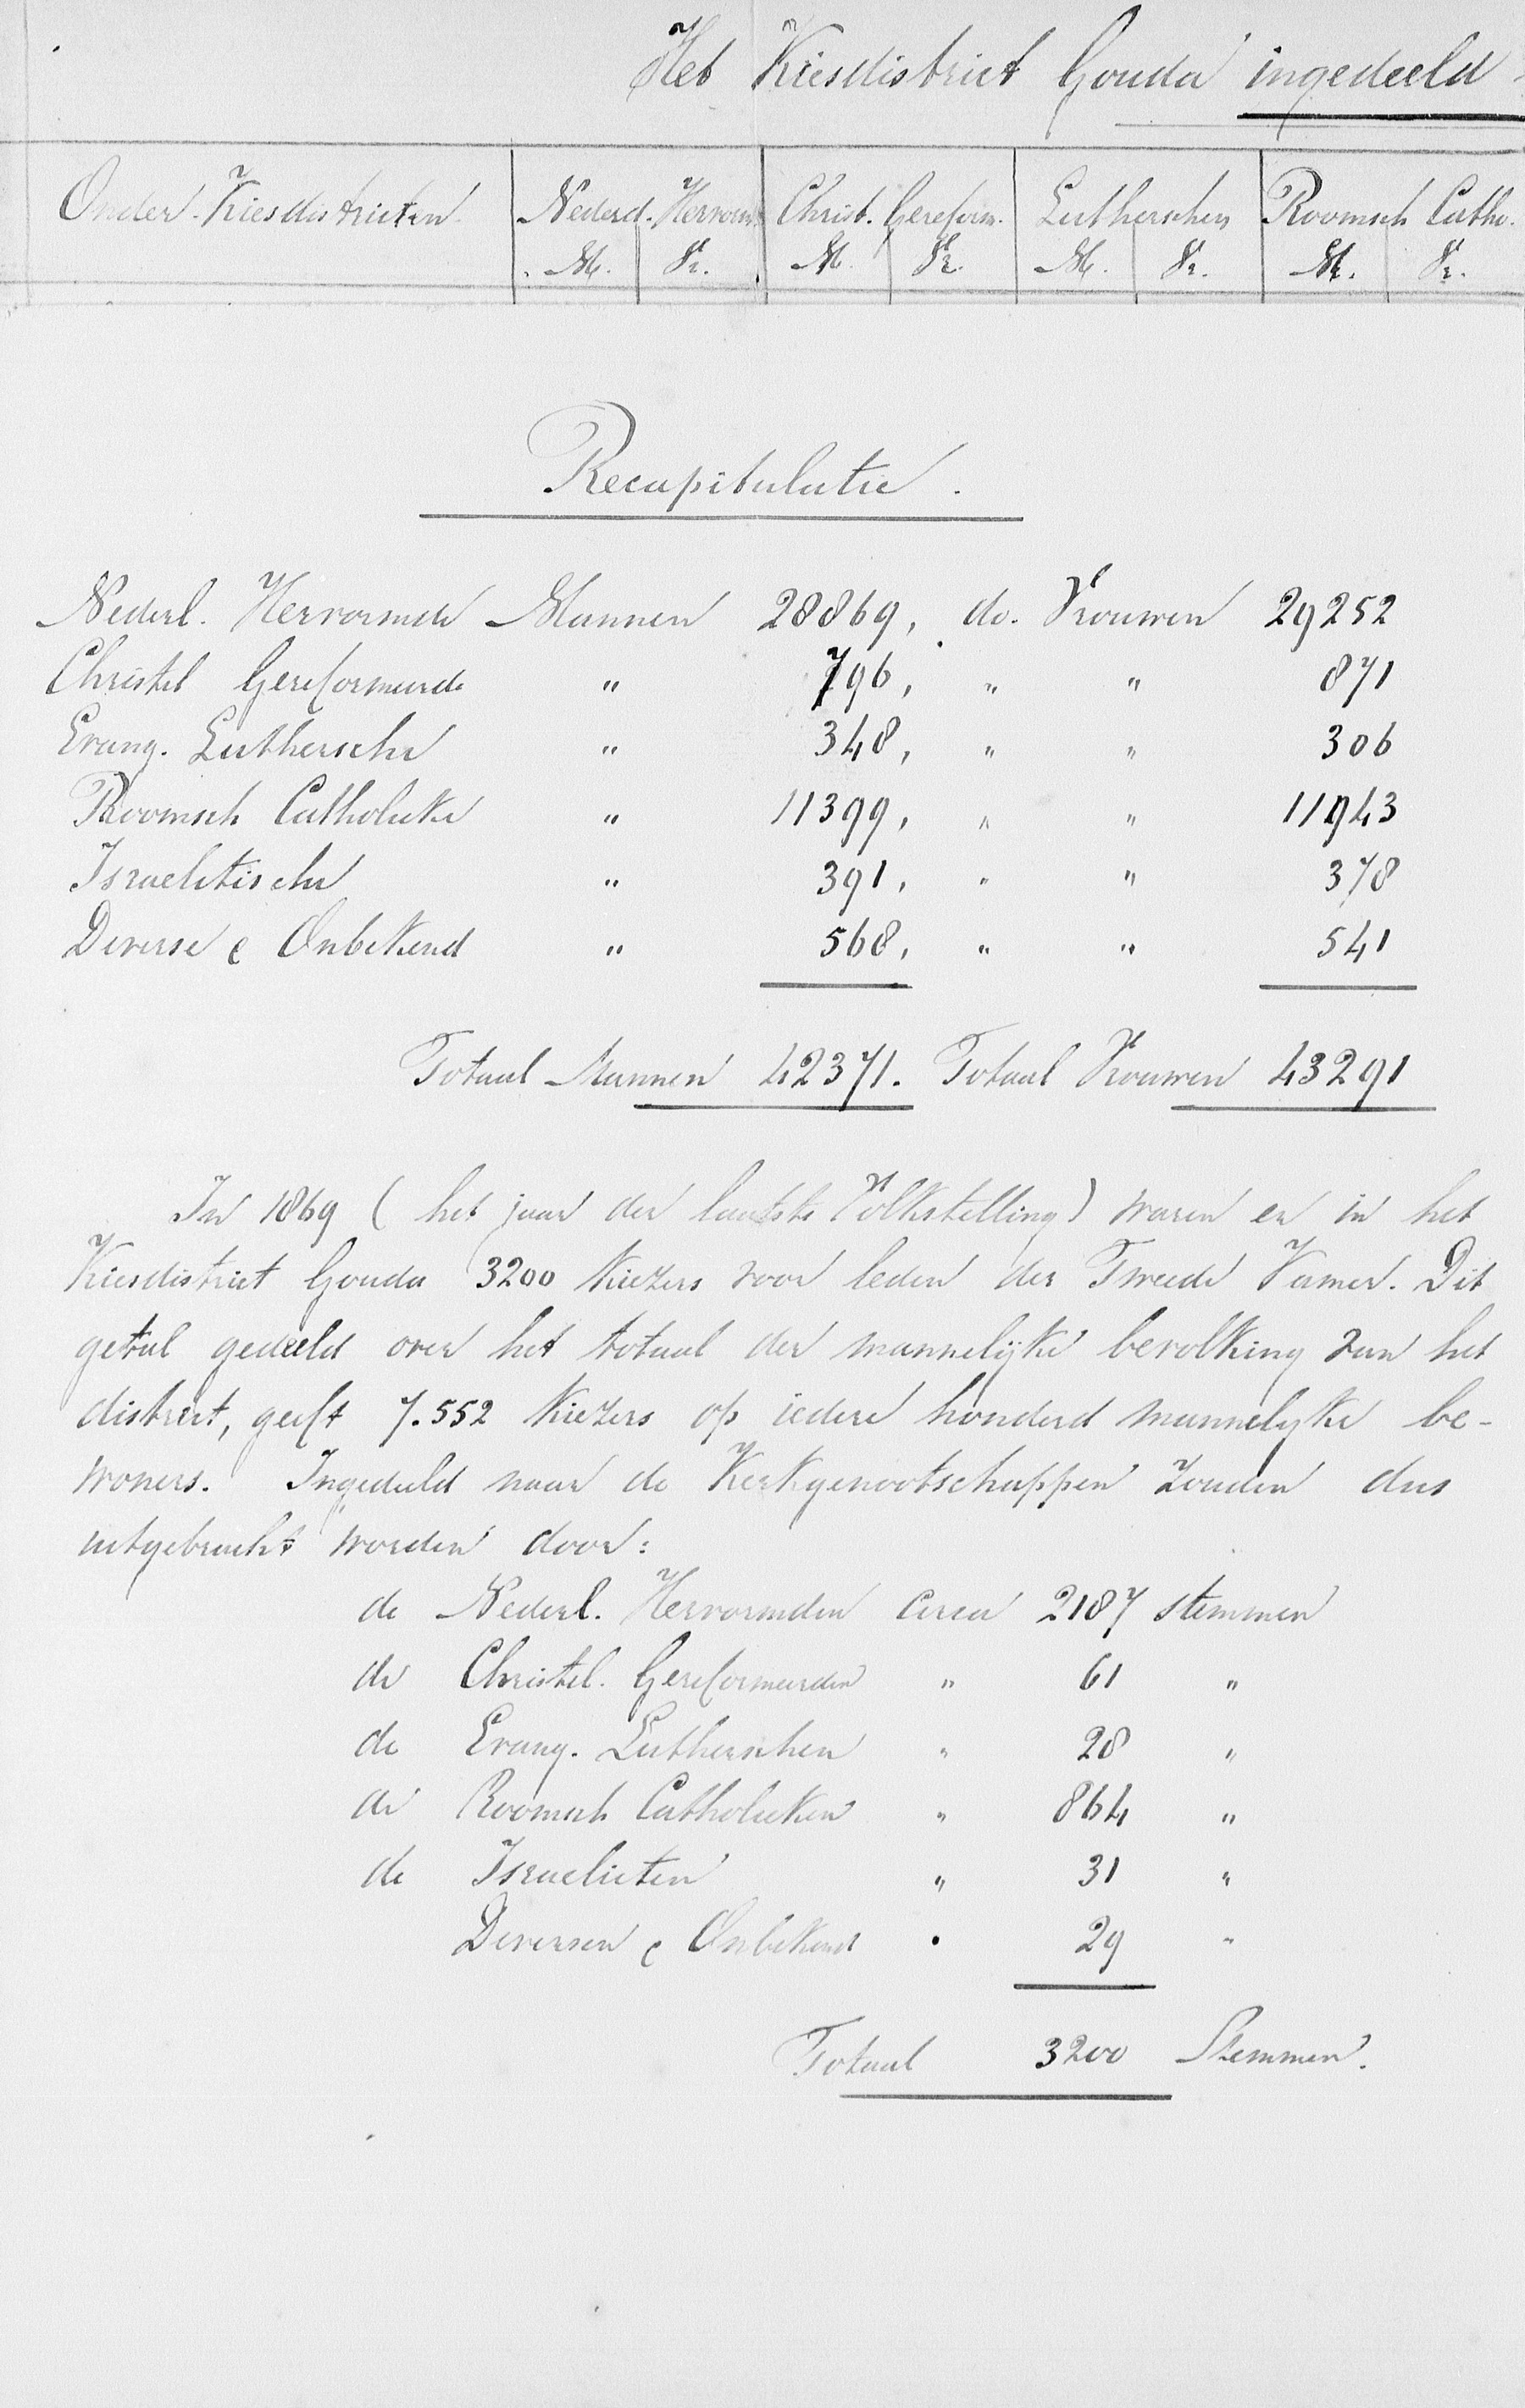 Het Kiesdistrict Gouda ingedeeld
Onder-Kiesdistricten Nederd. Hervorm. Christ. Gereform. Lutherschen Roomsch Catho.
M. Vr. M. Vr. M. Vr. M. Vr.
Recapitulatie.
Nederl. Hervormde Mannen 28869, do. Vrouwen 29252
Christel Gereformeerde " 796, " " 871
Evang. Luthersche " 348, " " 306
Roomsch Catholieke " 11399, " " 11943
Israelitische " 391, " " 378
Diverse & Onbekend " 568, " " 541
Totaal Mannen 42371. Totaal Vrouwen 43291
In 1869 (het jaar der laatste Volkstelling) waren er in het
Kiesdistrict Gouda 3200 Kiezers voor leden der Tweede Kamer. Dit
getal gedeeld over het totaal der mannelijke bevolking van het
district, geeft 7.552 Kiezers op iedere honderd mannelyke be-
woners. Ingedeeld naar de Kerkgenootschappen zouden dus
uitgebracht worden door:
de Nederl. Hervormden circa 2187 stemmen
de Christel. Gereformeerden " 61 "
de Evang. Lutherschen " 28 "
de Roomsch Catholieken " 864 "
de Israelieten " 31 "
Diversen & Onbekend " 29 "
Totaal 3200 Stemmen.